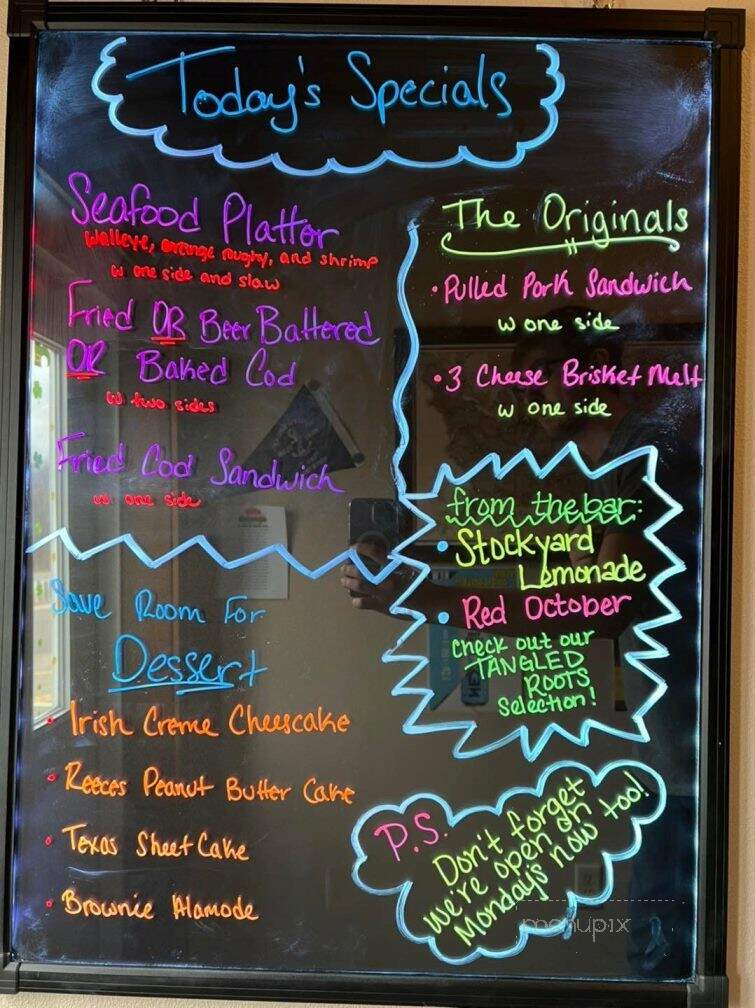 Today's Specials
Seafood Platter
Walleye, orange roughy, and shrimp
w one side and slaw
Fried OR Beer Battered
OR Baked Cod
w two sides
Fried Cod Sandwich
w one side
Save Room For
Dessert
• Irish Creme Cheescake
• Reeces Peanut Butter Cake
• Texas Sheet Cake
• Brownie Alamode
The Originals
• Pulled Pork Sandwich
w one side
• 3 Cheese Brisket Melt
w one side
from the bar:
• Stockyard
Lemonade
• Red October
Check out our
TANGLED
ROOTS
Selection!
P.S.
Don't forget
we're open on
Monday's now too!
menupix